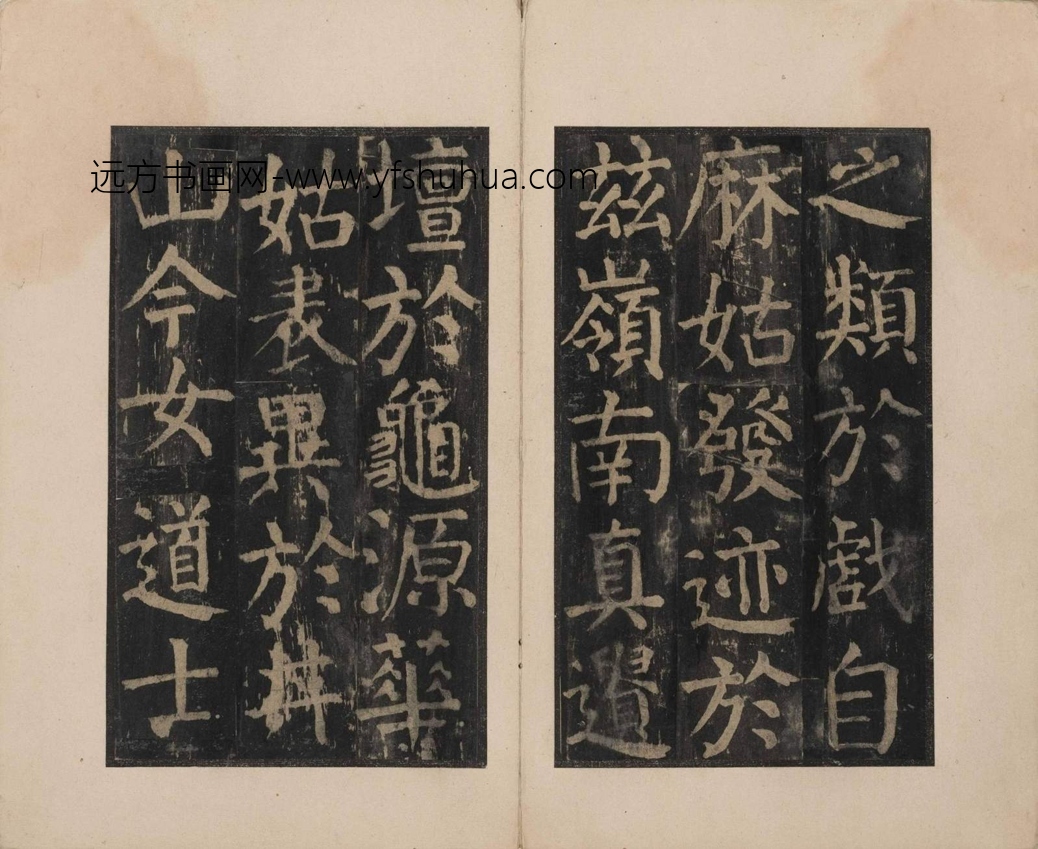 之類於戲自
麻姑發迹於
茲嶺南真遺
壇於龜源華
姑表異於井
山今女道士
远方书画网-www.yfshuhua.com